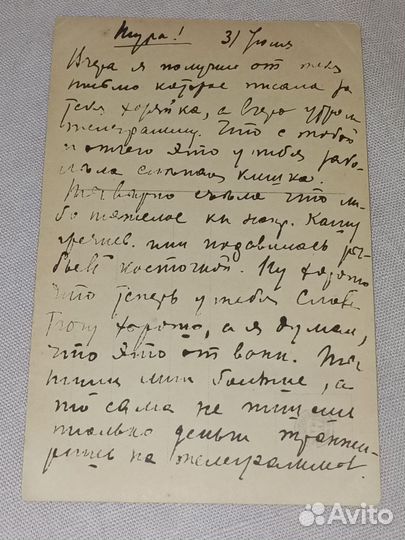 Шура! 31 Июля
Вчера я получил от тебя
письмо которое писала за
тебя хозяйка, а вчера утром
телеграмму. Что с тобой
и отчего это у тебя забо-
лела слепая кишка.
Ты верно съела что ли-
бо тяжелое как напр. кашу
гречнев. или подавилась ры-
бьей косточкой. Ну хорошо
что теперь у тебя слава
Богу хорошо, а я думал,
что это от вони. Ты
пиши мне больше, а
то сама не пишешь
только деньги транжи-
ришь на телеграммы.
Avito